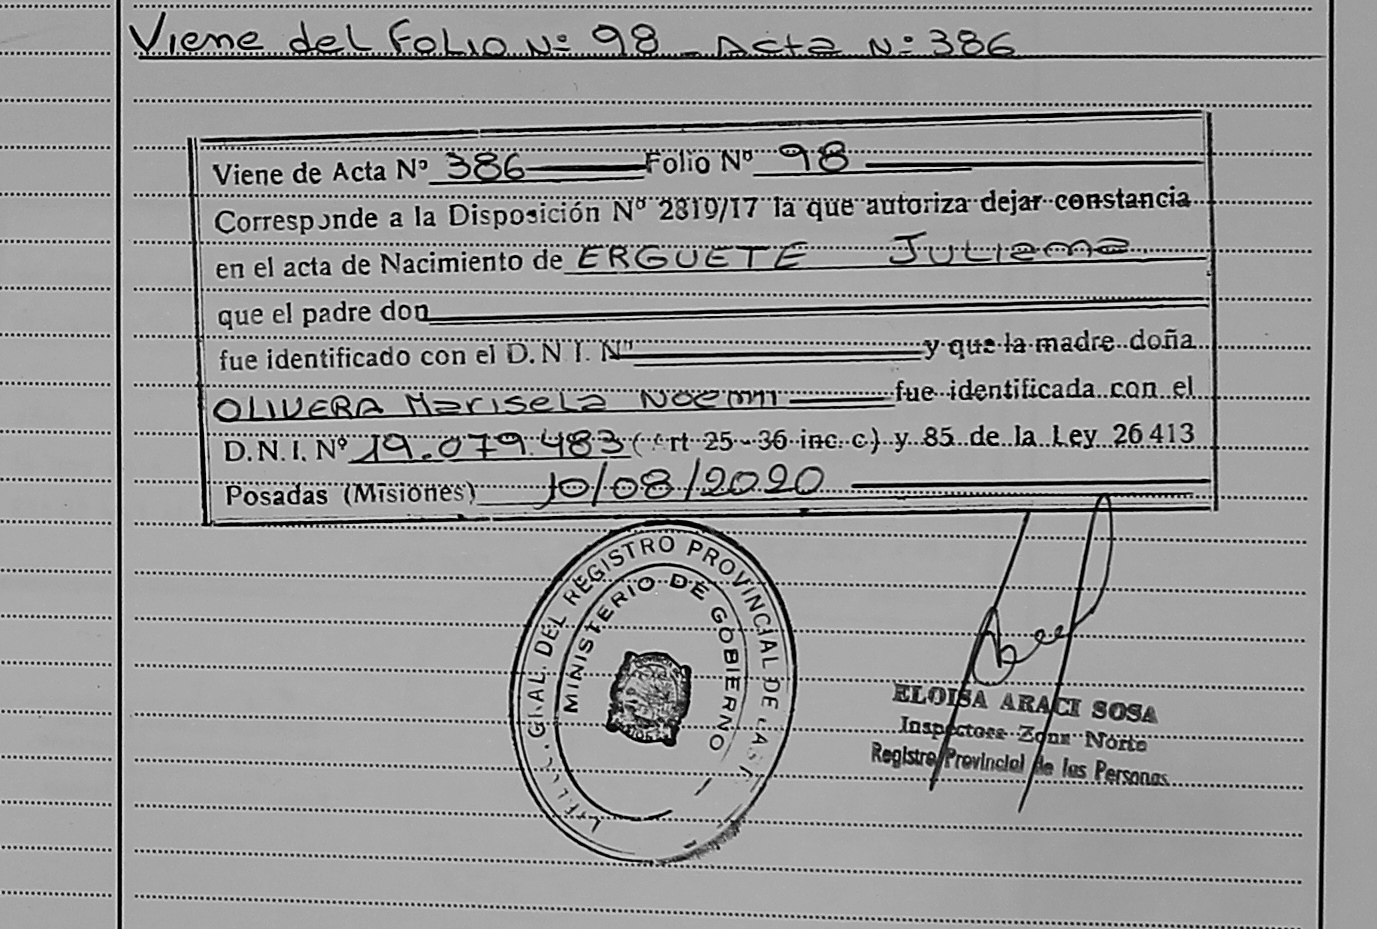 Viene del Folio Nº 98 - Acta Nº 386
Viene de Acta Nº 386 Folio Nº 98
Corresponde a la Disposición Nº 2819/17 la que autoriza dejar constancia
en el acta de Nacimiento de ERGUETE Juliana
que el padre don
fue identificado con el D.N.I. Nº y que la madre doña
OLIVERA Marisela Noemi fue identificada con el
D.N.I. Nº 19.079.483 (Art 25-36 inc. c) y 85 de la Ley 26413
Posadas (Misiones) 10/08/2020
GRAL. DEL REGISTRO PROVINCIAL DE LAS
MINISTERIO DE GOBIERNO
ELOISA ARACI SOSA
Inspectora Zona Norte
Registro Provincial de las Personas